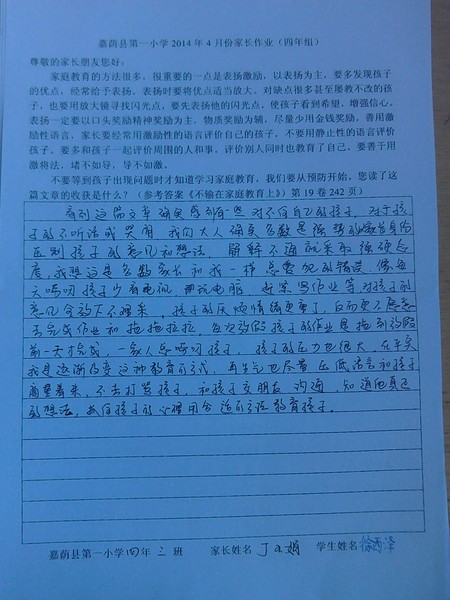 嘉荫县第一小学2014年4月份家长作业（四年组）
尊敬的家长朋友您好：
家庭教育的方法很多，很重要的一点是表扬激励，以表扬为主，要多发现孩子
的优点，经常给予表扬，表扬时要将优点适当放大，对缺点很多甚至屡教不改的孩
子，也要用放大镜寻找闪光点，要先表扬他的闪光点，使孩子看到希望，增强信心，
表扬一定要以口头奖励精神奖励为主，物质奖励为辅，尽量少用金钱奖励，善用激
励性语言，家长要经常用激励性的语言评价自己的孩子，不要用静止性的语言评价
孩子。要多和孩子一起评价周围的人和事，评价别人同时也教育了自己，要善于用
激将法，堵不如导，导不如激。
不要等到孩子出现问题时才知道学习家庭教育，我们要从预防开始，您读了这
篇文章的收获是什么？（参考答案《不输在家庭教育上》）第19卷242页）
看到这篇文章确实感到有些对不住自己的孩子，对于孩
子的不听话或哭闹，我们大人确实多数是强势的
压制孩子的意见和想法，解释不通就采取强硬态
度，我想这是多数家长和我一样总爱犯的错误，像每
天唠叨孩子少看电视，少玩电脑，赶紧写作业等，对孩子的
意见令效不理采，孩子的厌烦情绪更重了，反而更不愿意
去完成作业和拖拖拉拉，每次放假孩子的作业是拖到收假
前一天才完成，一家人总唠叨孩子，孩子的压力也很大，在平实
我是逐渐改变这种教育的方式，再生气也尽量压低语言和孩子
商量着来，不去打骂孩子，和孩子交朋友，沟通，知道他真正
的想法，抓住孩子的心理用合适的方法教育孩子。
嘉荫县第一小学四年三班 家长姓名 丁 娟 学生姓名 徐 泽